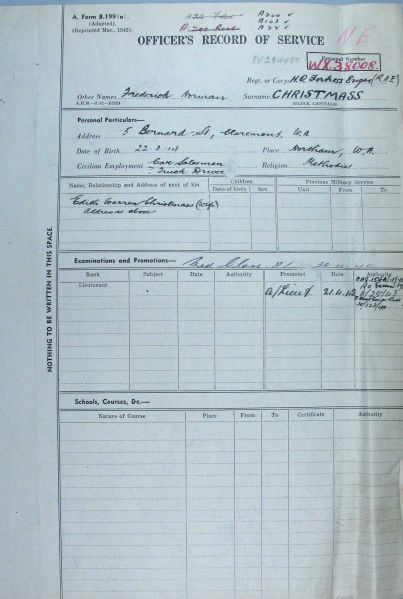 A. Form B.199(a).
(Adapted).
(Reprinted Mar., 1942).
A200 ✓
B103 ✓
A22 ✓
A 200 Recd
OFFICER'S RECORD OF SERVICE
N F
W234480
Personal Number
WX.38008.
Regt. or Corps H.Q. Fortress Engrs (R.A.E)
Other Names Frederick Norman Surname CHRISTMASS
(BLOCK CAPITALS)
Personal Particulars—
Address 5 Bernard St, Claremont, W.A
Date of Birth 22.3.14 Place Northam, W.A.
Civilian Employment Car Salesman Religion Methodist
Truck Driver
Name, Relationship and Address of next of kin
Children.
Date of birth
Sex
Previous Military Service
Unit
From
To
Edith Warren Christmass (wife)
Address above
Examinations and Promotions— Med Class A1
Rank
Subject
Date
Authority
Promoted
Date
Authority
Lieutenant
A/Lieut
21.4.43
Schools, Courses, &c.—
Nature of Course
Place
From
To
Certificate
Authority
NOTHING TO BE WRITTEN IN THIS SPACE.